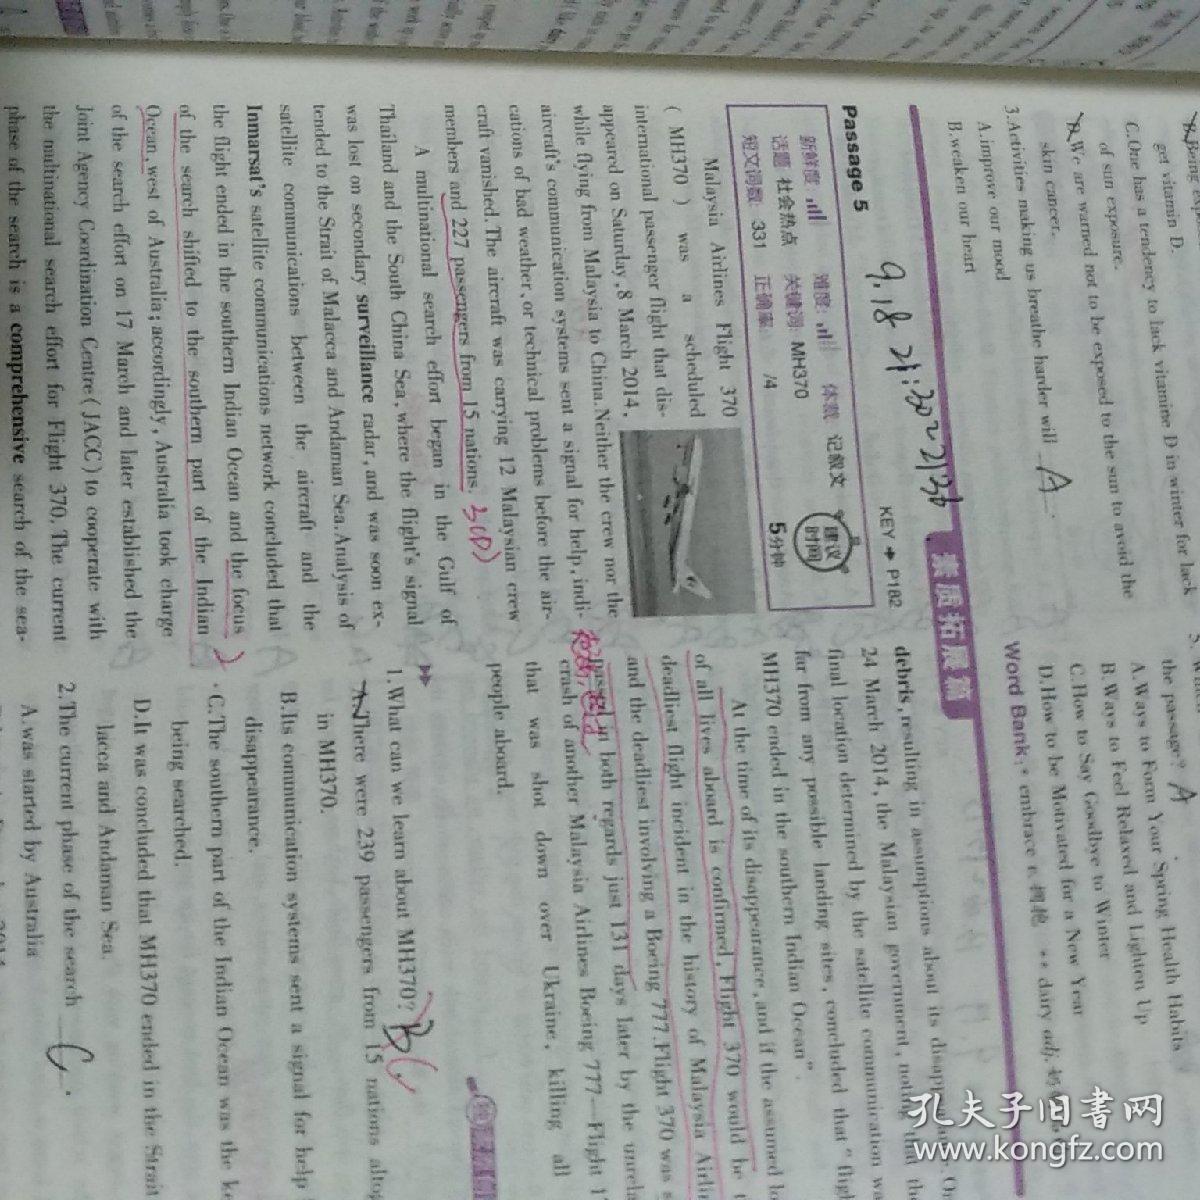 get vitamin D.
C.One has a tendency to lack vitamine D in winter for lack
of sun exposure.
We are warned not to be exposed to the sun to avoid the
skin cancer.
3.Activities making us breathe harder will A.
A.improve our mood
B.weaken our heart
the passage? A
A.Ways to Form Your Spring Health Habits
B.Ways to Feel Relaxed and Lighten Up
C.How to Say Goodbye to Winter
D.How to be Motivated for a New Year
Word Bank: * embrace v.拥抱 ** dairy adj.
素质拓展篇
9.18 21:30
Passage 5
KEY → P182
新鲜度: 难度: 体裁 记叙文
话题 社会热点 关键词: MH370
短文词数: 331 正确率: /4
建议时间
5分钟
Malaysia Airlines Flight 370
( MH370 ) was a scheduled
international passenger flight that dis-
appeared on Saturday,8 March 2014,
while flying from Malaysia to China.Neither the crew nor the
aircraft's communication systems sent a signal for help,indi-
cations of bad weather,or technical problems before the air-
craft vanished.The aircraft was carrying 12 Malaysian crew
members and 227 passengers from 15 nations. 3(D)
A multinational search effort began in the Gulf of
Thailand and the South China Sea,where the flight's signal
was lost on secondary surveillance radar,and was soon ex-
tended to the Strait of Malacca and Andaman Sea.Analysis of
satellite communications between the aircraft and the
Inmarsat's satellite communications network concluded that
the flight ended in the southern Indian Ocean and the focus
of the search shifted to the southern part of the Indian
Ocean,west of Australia;accordingly,Australia took charge
of the search effort on 17 March and later established the
Joint Agency Coordination Centre(JACC)to cooperate with
the multinational search effort for Flight 370. The current
phase of the search is a comprehensive search of the sea-
debris,resulting in assumptions about its
24 March 2014,the Malaysian government,
final location determined by the satellite communication
far from any possible landing sites,concluded that "
MH370 ended in the southern Indian Ocean".
At the time of its disappearance,and if the assumed
of all lives aboard is confirmed,Flight 370 would be
deadliest flight incident in the history of Malaysia
and the deadliest involving a Boeing 777.Flight 370 was
in both regards just 131 days later by the
crash of another Malaysia Airlines Boeing 777—Flight
that was shot down over Ukraine, killing all
people aboard.
1.What can we learn about MH370? B C
A.There were 239 passengers from 15 nations
in MH370.
B.Its communication systems sent a signal for help
disappearance.
C.The southern part of the Indian Ocean was the
being searched.
D.It was concluded that MH370 ended in the Strait
lacca and Andaman Sea.
2.The current phase of the search C.
A.was started by Australia
孔夫子旧书网
www.kongfz.com